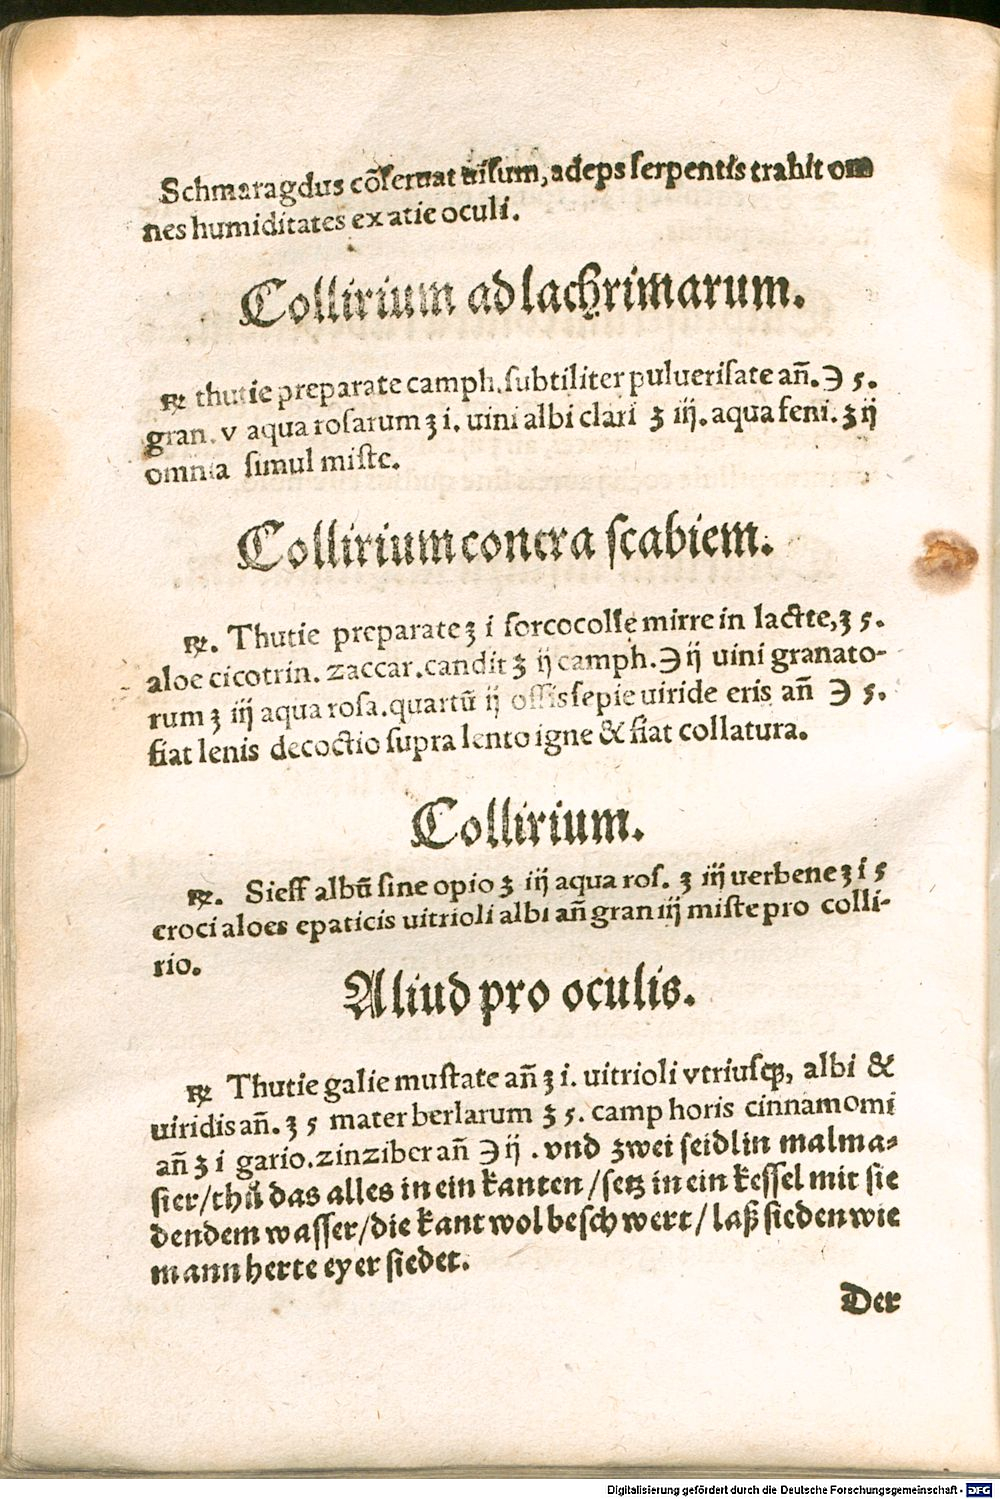 Schmaragdus cõseruat uisum, adeps serpentis trahit om
nes humiditates ex atie oculi.
Collirium ad lachrimarum.
℞ thutie preparate camph. subtiliter puluerisate añ. ℈ 5.
gran. v aqua rosarum ʒ i. uini albi clari ʒ iij. aqua feni. ʒ ij
omnia simul miste.
Collirium contra scabiem.
℞. Thutie preparate ʒ i sorcocolle mirre in lactte, ʒ 5.
aloe cicotrin. zaccar. candit ʒ ij camph. ℈ ij uini granato-
rum ʒ iij aqua rosa. quartũ ij ossis sepie uiride eris añ ℈ 5.
fiat lenis decoctio supra lento igne & fiat collatura.
Collirium.
℞. Sieff albũ sine opio ʒ iij aqua ros. ʒ iij uerbene ʒ i 5
croci aloes epaticis uitrioli albi añ gran iij miste pro colli-
rio.
Aliud pro oculis.
℞ Thutie galie mustate añ ʒ i. uitrioli vtriusqꝫ, albi &
uiridis añ. ʒ 5 mater berlarum ʒ 5. camphoris cinnamomi
añ ʒ i gario. zinziber añ ℈ ij . vnd zwei seidlin malma-
sier/thů das alles in ein kanten/setz in ein kessel mit sie
dendem wasser/die kant wol beschwert/laß sieden wie
mann herte eyer siedet.
Der
Digitalisierung gefördert durch die Deutsche Forschungsgemeinschaft - DFG